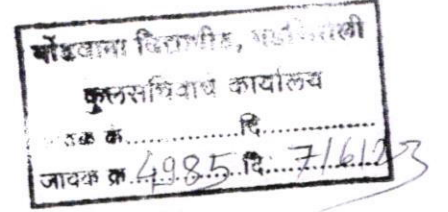 गोंडवाना विद्यापीठ, गडचिरोली
कुलसचिवांचे कार्यालय
क्र.............दि..............
जावक क्र 4985 दि: 7/6/23